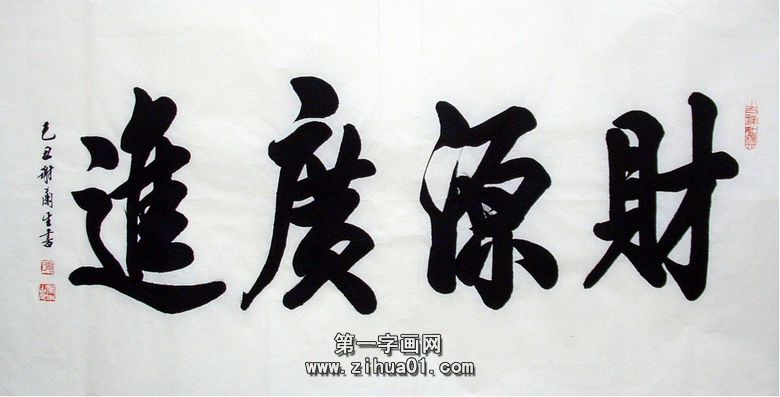 財源廣進
己丑謝蘭生書
第一字画网
www.zihua01.com